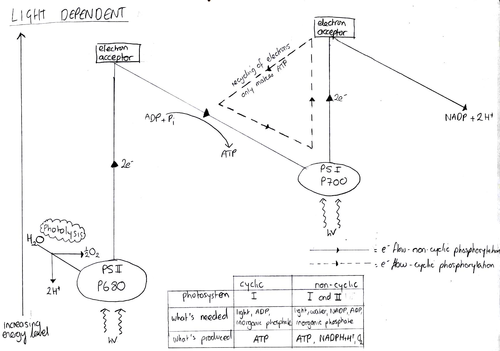 LIGHT DEPENDENT
electron
acceptor
electron
acceptor
recycling of electrons
only makes ATP
2e⁻
ADP + Pi
ATP
NADP + 2H⁺
2e⁻
PS I
P700
Photolysis
H₂O
½O₂
2H⁺
PS II
P680
hv
hv
= e⁻ flow - non-cyclic phosphorylation
= e⁻ flow - cyclic phosphorylation
increasing
energy level
cyclic non-cyclic
photosystem I I and II
what's needed light, ADP, inorganic phosphate light, water, NADP, ADP, inorganic phosphate
what's produced ATP ATP, NADPH+H⁺, O₂